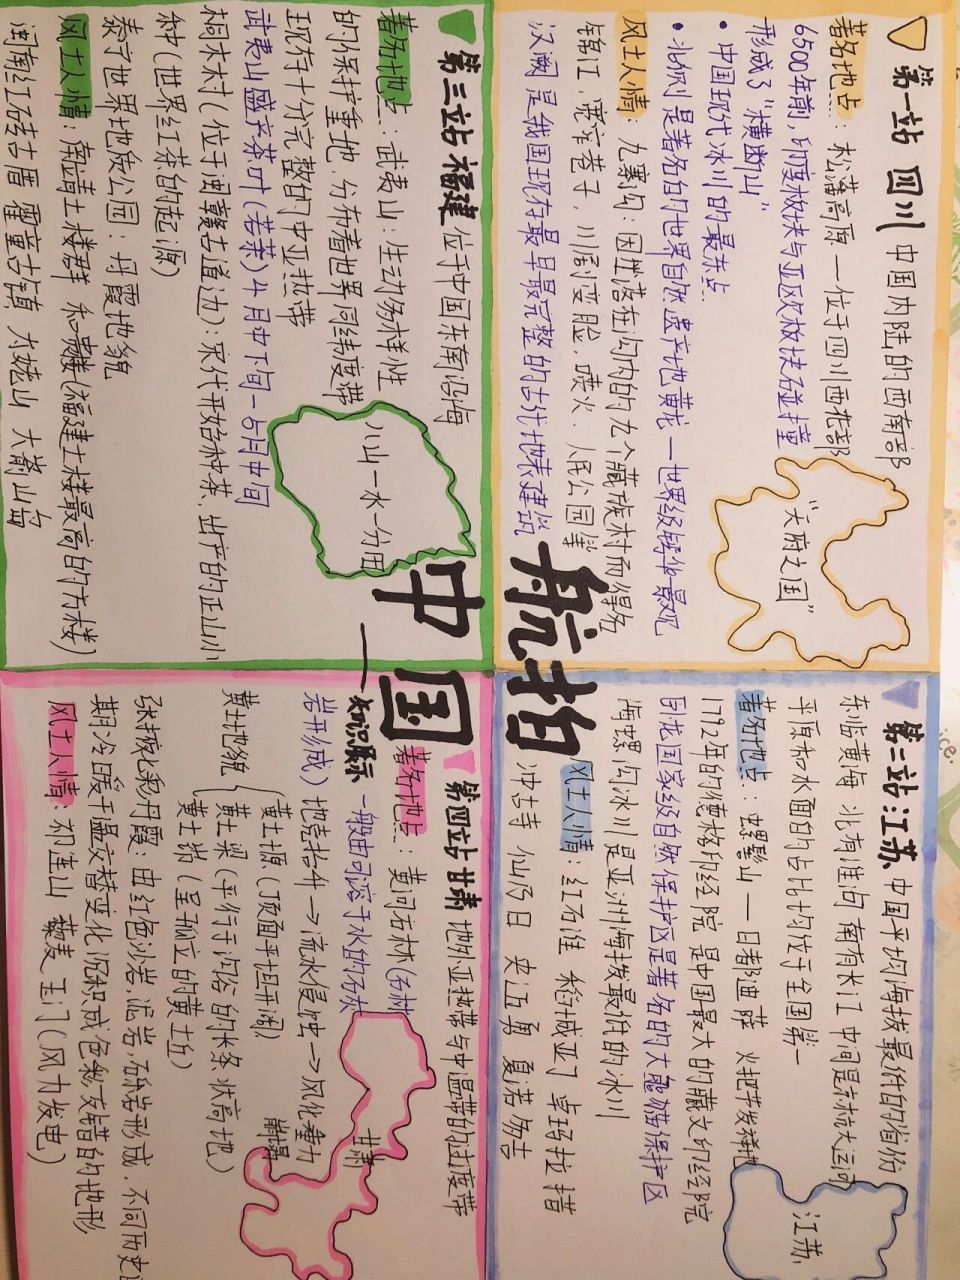 航拍
中国
——知识展示
第一站 四川 中国内陆的西南部
著名地点：松潘高原 — 位于四川西北部
6500年前，印度板块与亚欧板块碰撞
形成了“横断山”
• 中国现代冰川的最东点
• 此外则是著名的世界自然遗产地黄龙—世界级钙华景观
风土人情：九寨沟：因坐落在沟内的九个藏族村而得名
锦江，宽窄巷子，川剧变脸，喷火，人民公园等
汉阙 是我国现存最早最完整的古代地表建筑
“天府之国”
第二站：江苏 中国平均海拔最低的省份
东临黄海 北有淮河 南有长江 中间是京杭大运河
平原和水面的占比均位于全国第一
著名地点：螺髻山 — 日都迪萨 火把节发祥地
1792年的德格印经院 是中国最大的藏文印经院
卧龙国家级自然保护区是著名的大熊猫保护区
海螺沟冰川是亚洲海拔最低的冰川
风土人情：红石滩 稻城亚丁 卓玛拉措
冲古寺 仙乃日 央迈勇 夏诺多吉
江苏
第三站 福建 位于中国东南沿海
著名地点：武夷山：生物多样性
的保护重地，分布着世界同纬度带
现存十分完整的中亚热带
武夷山盛产茶叶（岩茶）4月中下旬—5月中旬
桐木村（位于闽赣古道边）：宋代开始种茶，出产的正山小
种（世界红茶的起源）
泰宁世界地质公园：丹霞地貌
风土人情：南靖土楼群 和贵楼（福建土楼最高的方楼）
闽南红砖古厝 霍童古镇 太姥山 大嵛山岛
八山一水一分田
第四站 甘肃 地处亚热带与中温带的过渡带
著名地点：黄河石林（石林
一般由可溶于水的石灰
岩形成）地壳抬升→流水侵蚀→风化重力
崩塌
黄土地貌
黄土塬（顶面平坦开阔）
黄土梁（平行于沟谷的长条状高地）
黄土峁（呈孤立的黄土丘）
张掖七彩丹霞：由红色沙岩，泥岩，砾岩形成，不同历史
期冷暖干湿交替变化 沉积成色彩交错的地形
风土人情：祁连山 敦煌 玉门（风力发电）
甘肃